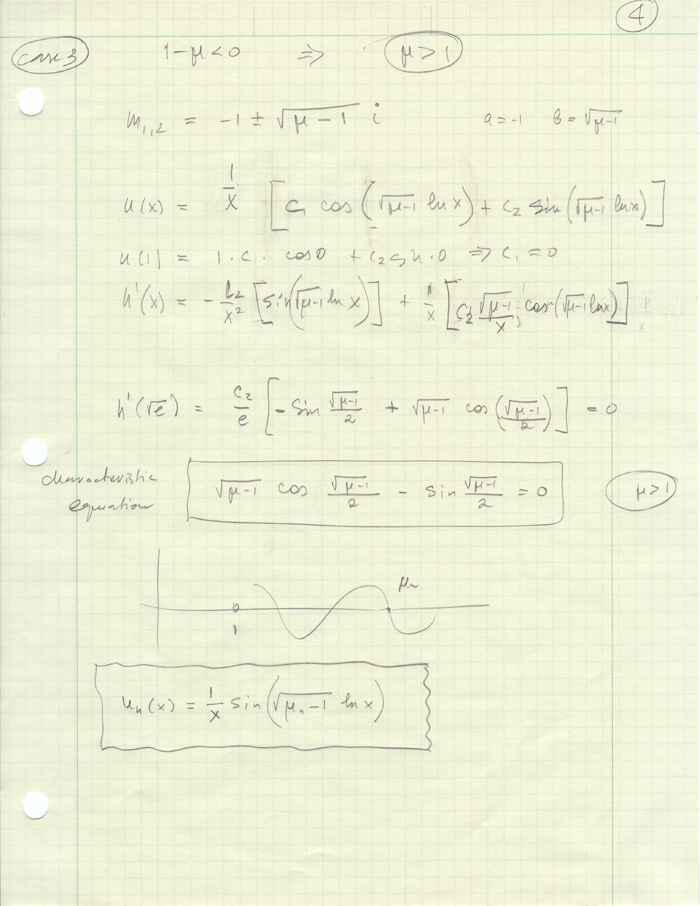 4
case 3 1-μ<0 ⇒ μ>1
m₁,₂ = -1 ± √(μ-1) i a=-1 b=√(μ-1)
u(x) = 1/x [c₁ cos(√(μ-1) ln x) + c₂ sin(√(μ-1) ln x)]
u(1) = 1·c· cos0 + c₂ sin·0 ⇒ c₁ = 0
u'(x) = -c₂/x² [sin(√(μ-1) ln x)] + 1/x [c₂ √(μ-1)/x cos(√(μ-1) ln x)]
u'(√e) = c₂/e [-sin √(μ-1)/2 + √(μ-1) cos(√(μ-1)/2)] = 0
characteristic
equation √(μ-1) cos √(μ-1)/2 - sin √(μ-1)/2 = 0 μ>1
μₙ
0
1
uₙ(x) = 1/x sin(√(μₙ-1) ln x)